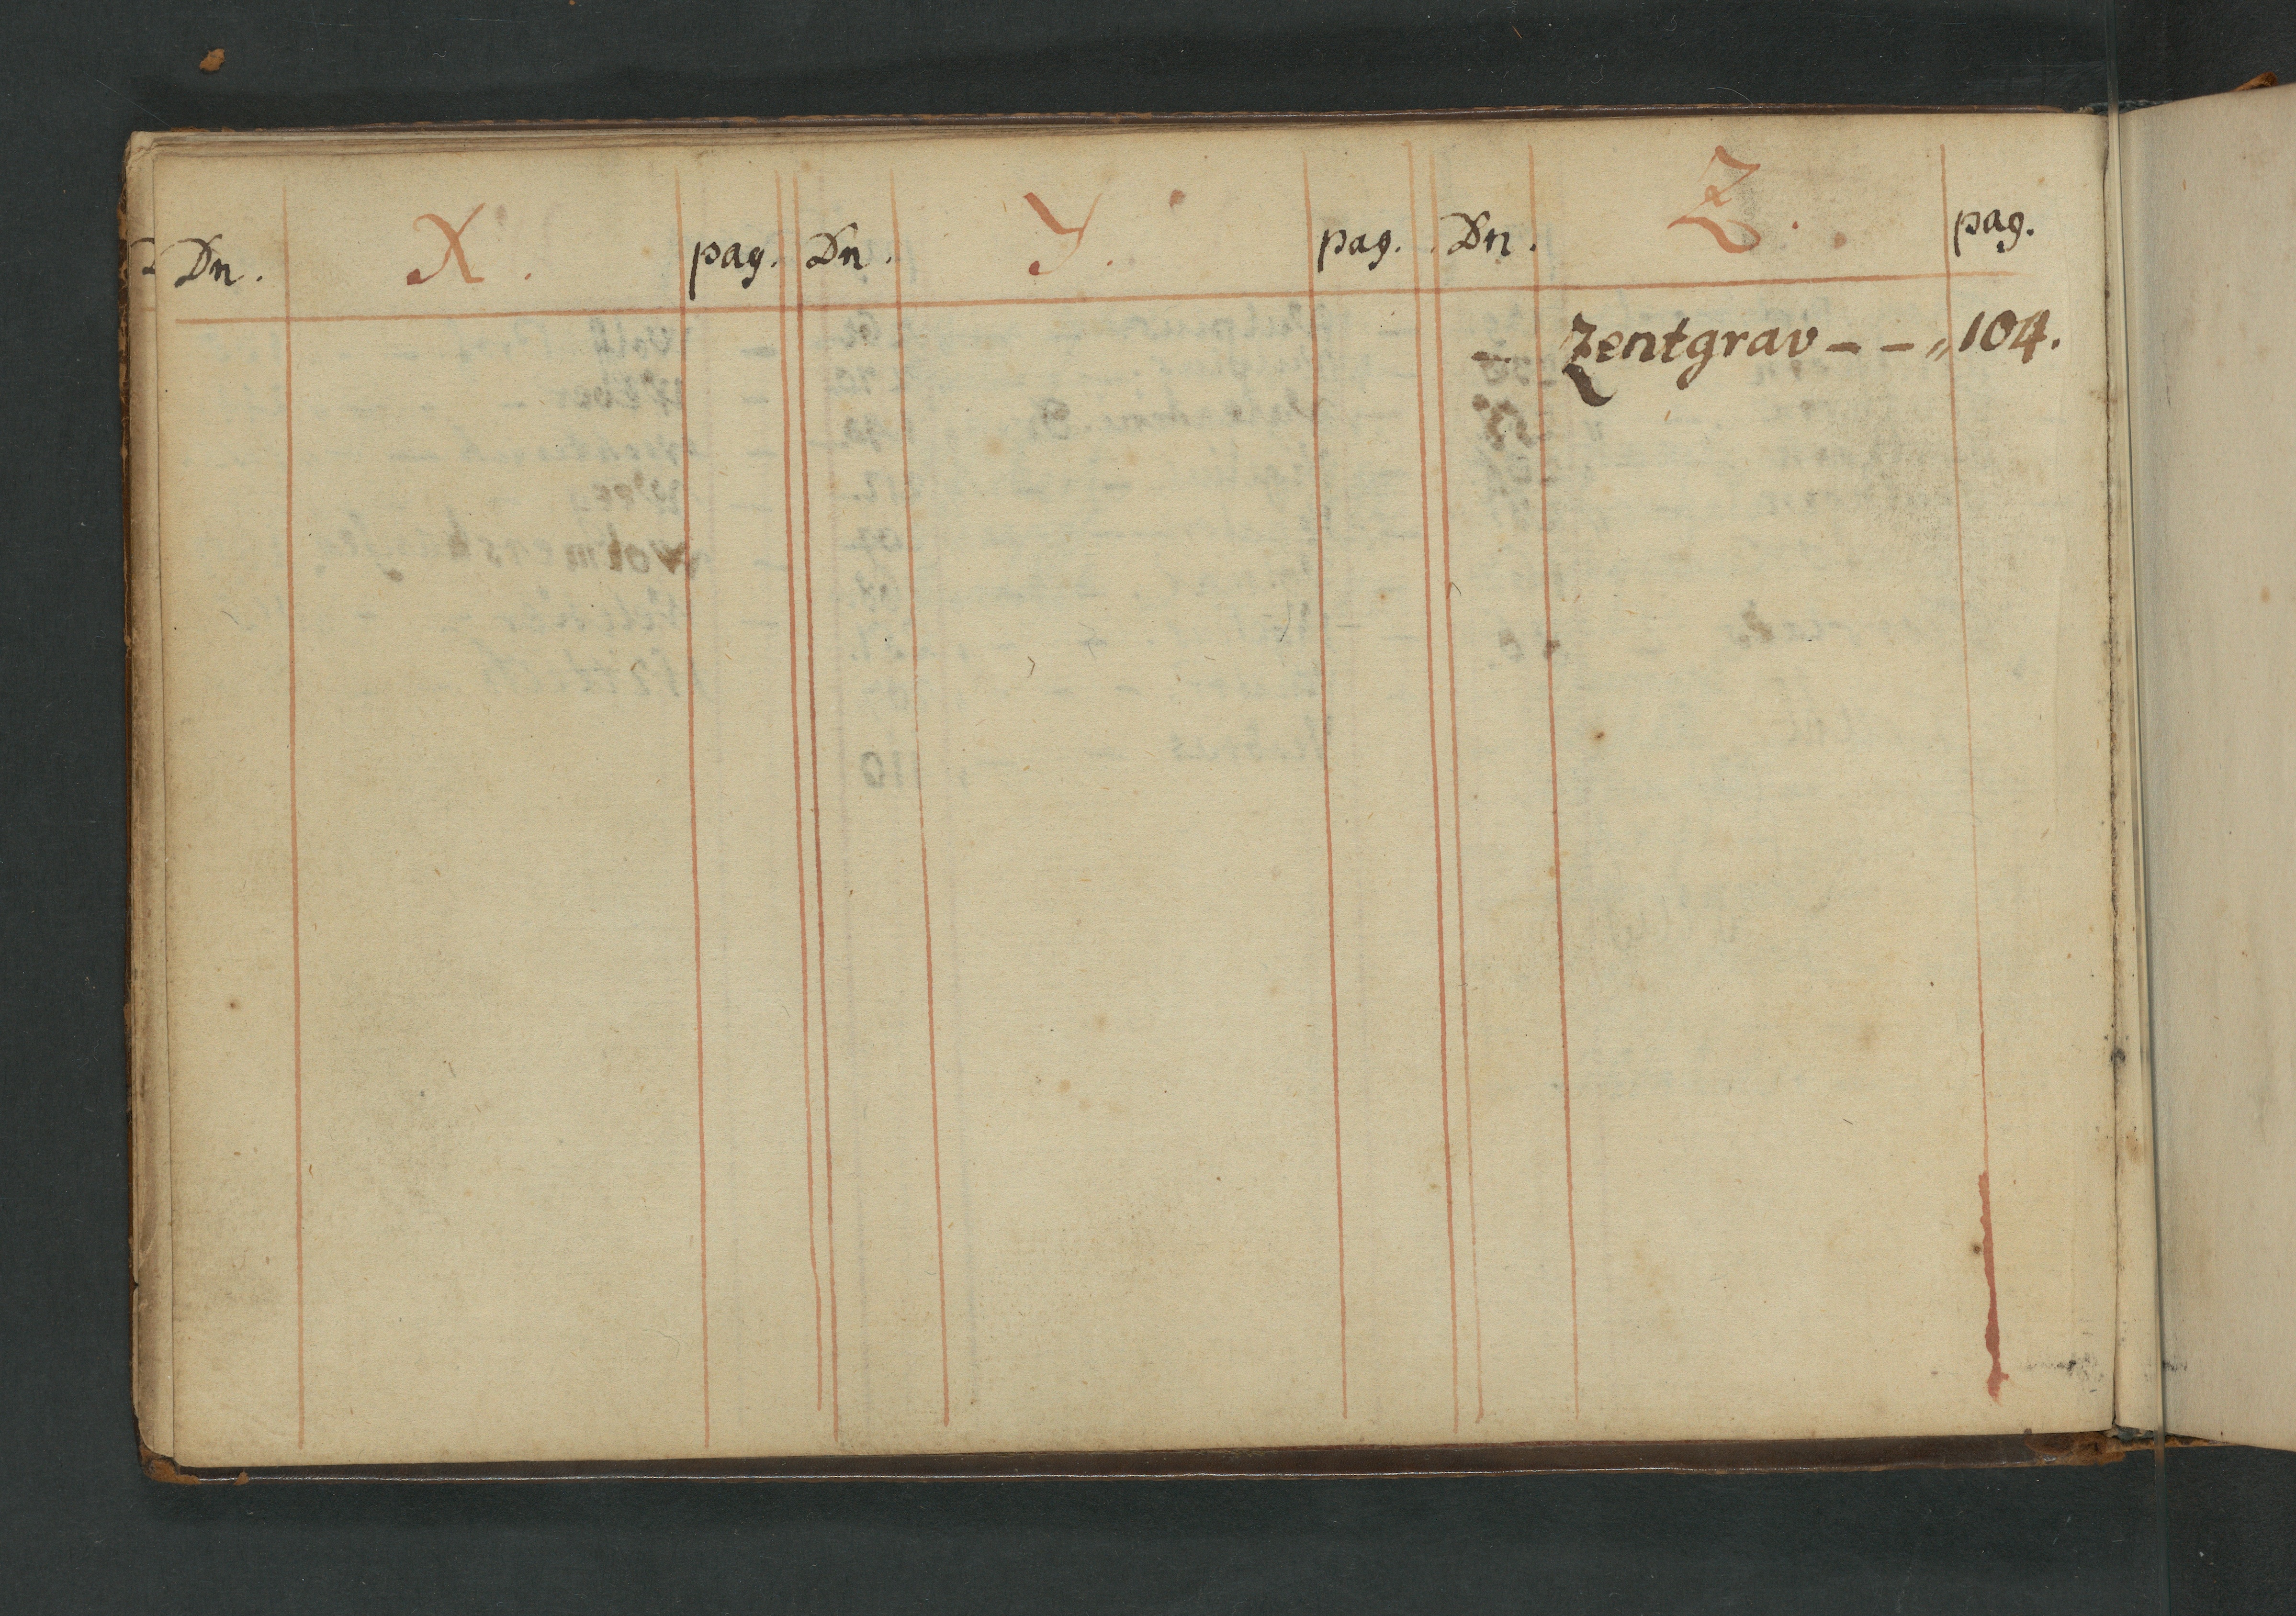 Dn. X. pag. Dn. Y. pag. Dn. Z. pag.
– Zentgrav – – „ 104.